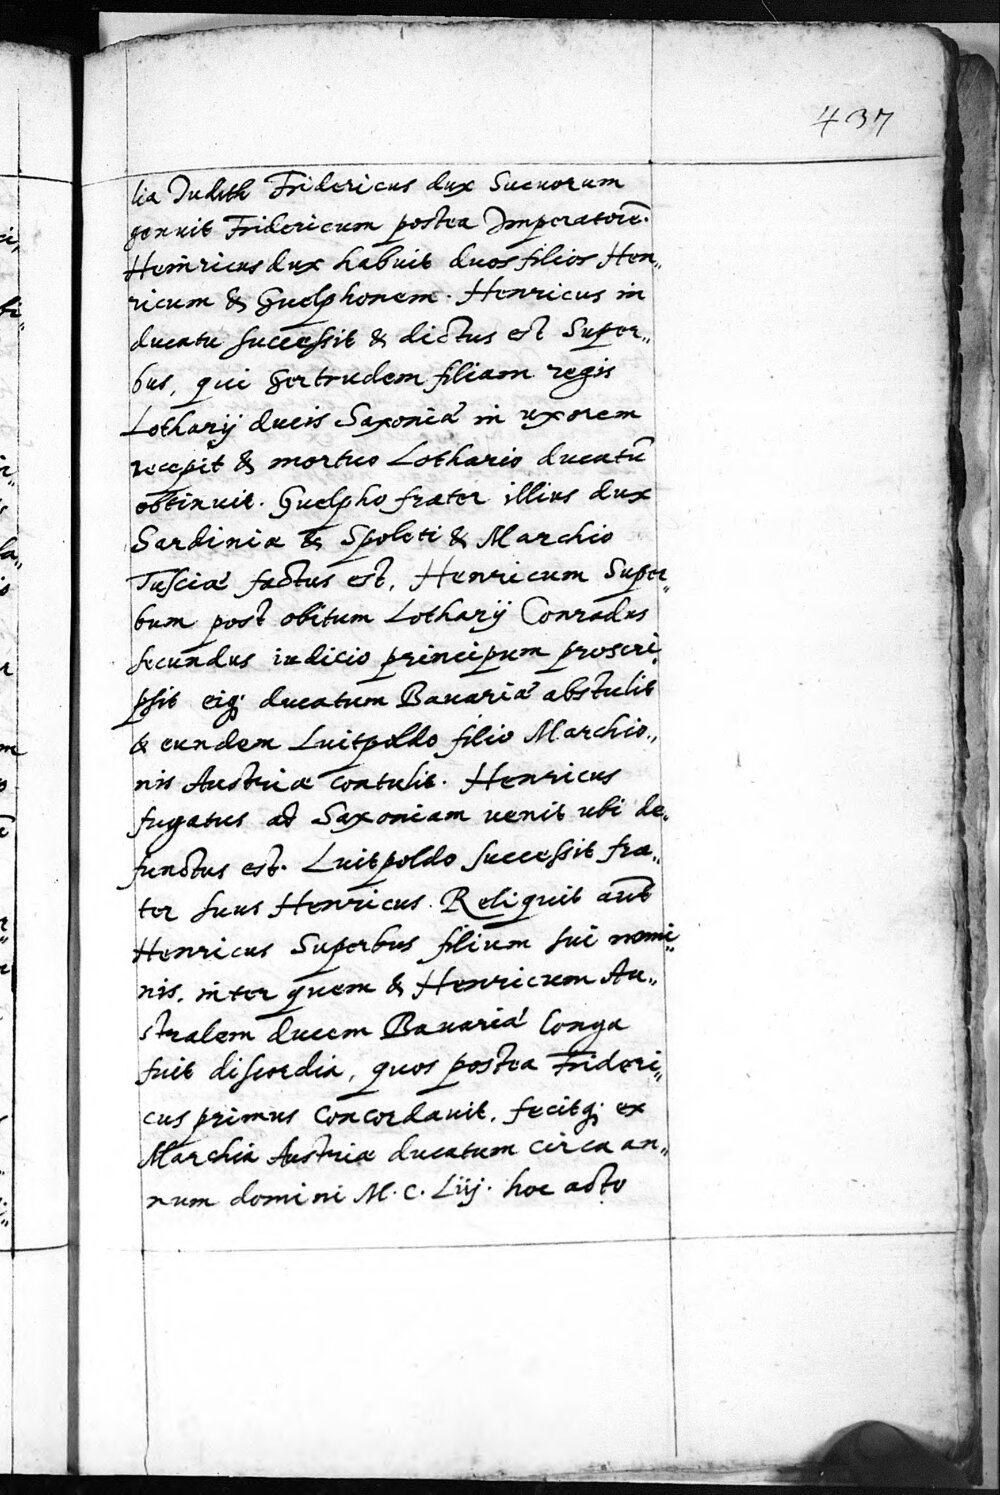 437
lia Judith Fridericus dux Sueuorum
genuit Fridericum postea Imperatorē.
Heinricus dux habuit duos filios Hen„
ricum & Guelphonem. Henricus in
ducatu successit & dictus est Super„
bus, qui Gertrudem filiam regis
Lotharij ducis Saxoniæ in uxorem
recepit & mortuo Lothario ducatū
obtinuit. Guelpho frater illius dux
Sardiniæ & Spoleti & Marchio
Tusciæ factus est, Henricum Super„
bum post obitum Lotharij Conradus
secundus iudicio principum proscri„
psit eiq; ducatum Bauariæ abstulit
& eundem Luitpoldo filio Marchio„
nis Austriæ contulit. Henricus
fugatus ad Saxoniam uenit ubi de„
functus est. Luitpoldo successit fra„
ter suus Henricus. Reliquit aūt
Henricus Superbus filium sui nomi„
nis. inter quem & Henricum Au„
stralem ducem Bauariæ longa
fuit discordia, quos postea Frideri„
cus primus concordauit, fecitq; ex
Marchia Austriæ ducatum circa an„
num domini M. C. Liij. hoc acto